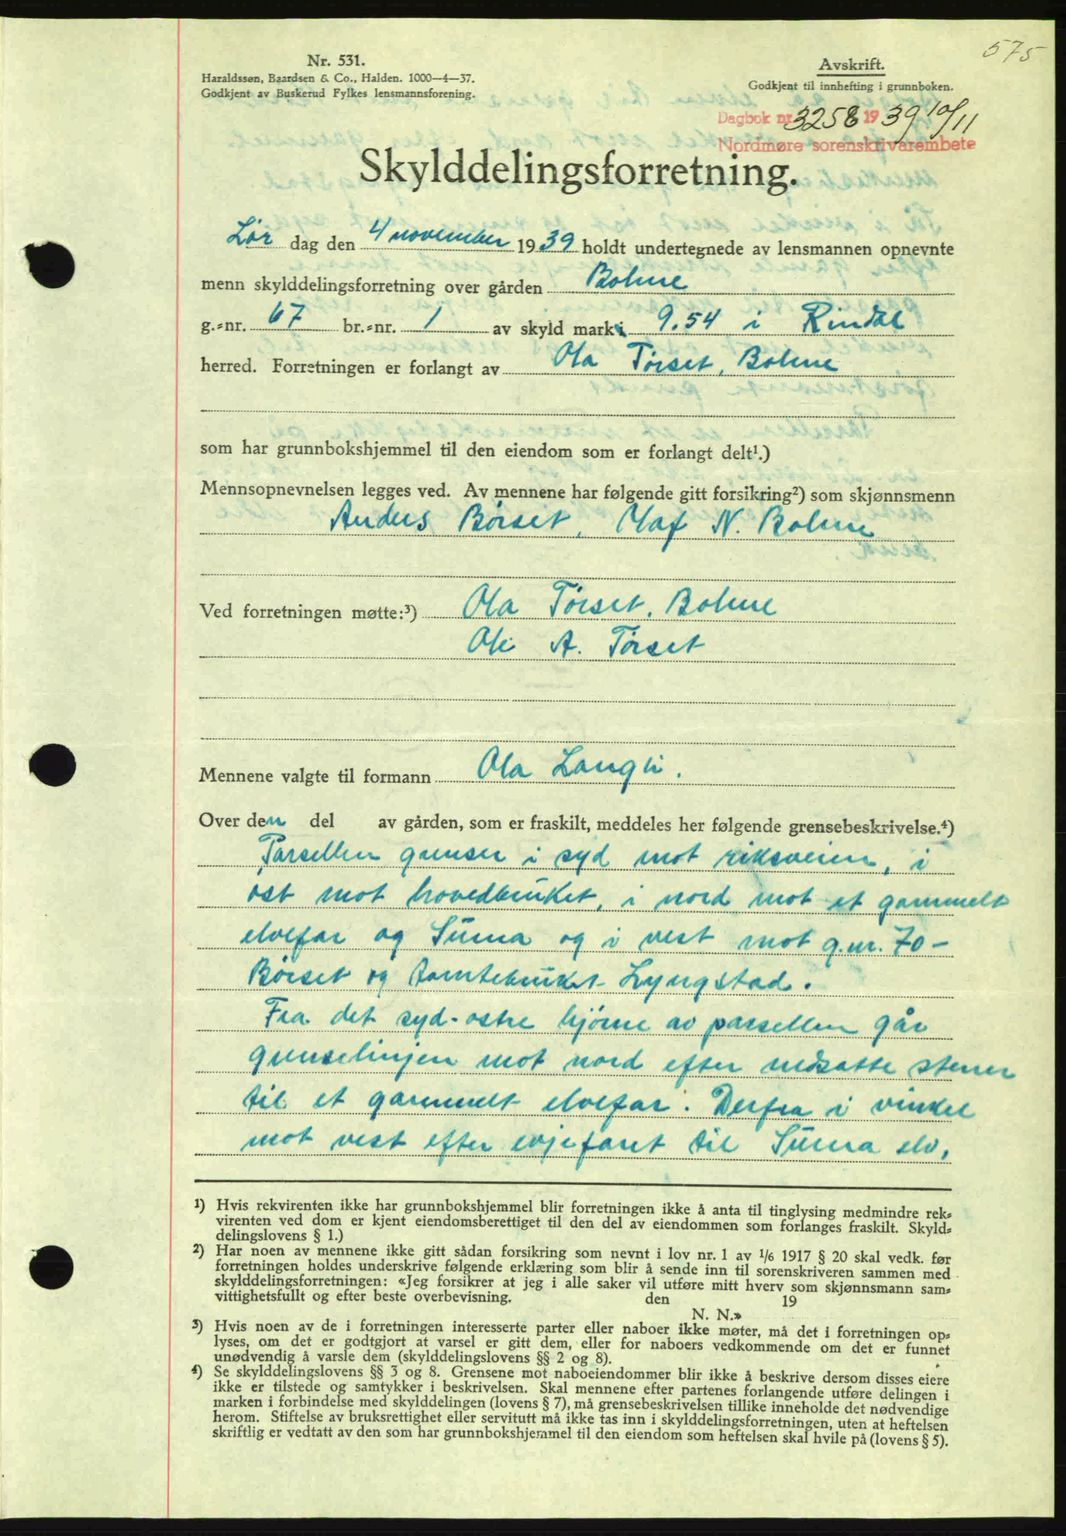 575
Nr. 531.
Haraldssøn, Baardsen & Co., Halden. 1000—4—37.
Godkjent av Buskerud Fylkes lensmannsforening.
Avskrift.
Godkjent til innhefting i grunnboken.
Dagbok nr. 3258 1939 10/11
Nordmøre sorenskrivarembete
Skylddelingsforretning.
Lør dag den 4 november 1939 holdt undertegnede av lensmannen opnevnte
menn skylddelingsforretning over gården Bolme
g.-nr. 67 br.-nr. 1 av skyld mark 9.54 i Rindal
herred. Forretningen er forlangt av Ola Tørset, Bolme
som har grunnbokshjemmel til den eiendom som er forlangt delt¹.)
Mennsopnevnelsen legges ved. Av mennene har følgende gitt forsikring²) som skjønnsmenn
Anders Børset, Olaf N. Bolme
Ved forretningen møtte:³) Ola Tørset, Bolme
Ole A. Tørset
Mennene valgte til formann Ola Langli.
Over den del av gården, som er fraskilt, meddeles her følgende grensebeskrivelse.⁴)
Parsellen grenser i syd mot riksveien, i
øst mot hovedbruket, i nord mot et gammelt
elvefar og Surna og i vest mot g.nr. 70 –
Børset og tomtebruket Lyngstad.
Fra det syd-østre hjørne av parsellen går
grenselinjen mot nord efter nedsatte stener
til et gammelt elvefar. Derfra i vinkel
mot vest efter evjefaret til Surna elv,
¹) Hvis rekvirenten ikke har grunnbokshjemmel blir forretningen ikke å anta til tinglysing medmindre rek-
virenten ved dom er kjent eiendomsberettiget til den del av eiendommen som forlanges fraskilt. Skyld-
delingslovens § 1.)
²) Har noen av mennene ikke gitt sådan forsikring som nevnt i lov nr. 1 av 1/6 1917 § 20 skal vedk. før
forretningen holdes underskrive følgende erklæring som blir å sende inn til sorenskriveren sammen med
skylddelingsforretningen: «Jeg forsikrer at jeg i alle saker vil utføre mitt hverv som skjønnsmann sam-
vittighetsfullt og efter beste overbevisning. den 19
N. N.»
³) Hvis noen av de i forretningen interesserte parter eller naboer ikke møter, må det i forretningen op-
lyses, om det er godtgjort at varsel er gitt dem, eller for naboers vedkommende om det er funnet
unødvendig å varsle dem (skylddelingslovens §§ 2 og 8).
⁴) Se skylddelingslovens §§ 3 og 8. Grensene mot naboeiendommer blir ikke å beskrive dersom disses eiere
ikke er tilstede og samtykker i beskrivelsen. Skal mennene efter partenes forlangende utføre delingen i
marken i forbindelse med skylddelingen (lovens § 7), må grensebeskrivelsen tillike inneholde det nødvendige
herom. Stiftelse av bruksrettighet eller servitutt må ikke tas inn i skylddelingsforretningen, uten at heftelsen
skriftlig er vedtatt av den som har grunnbokshjemmel til den eiendom som heftelsen skal hvile på (lovens § 5).